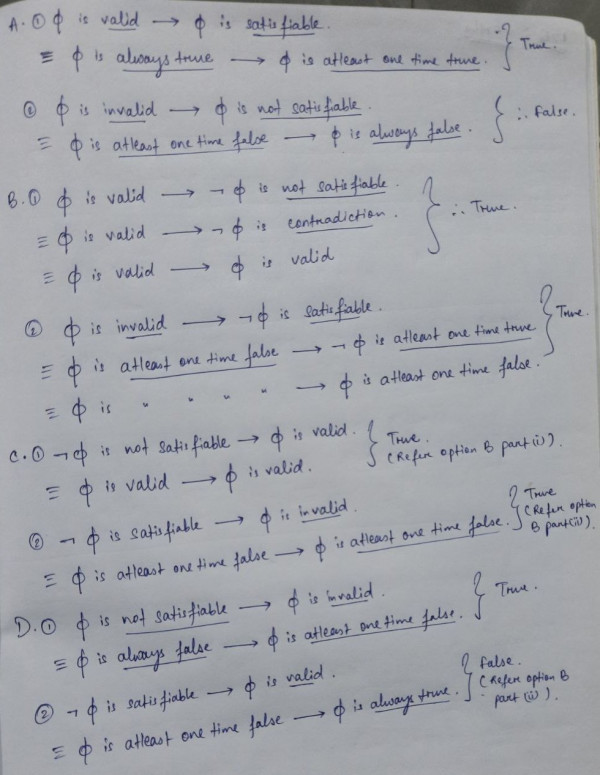 A. ① ϕ is valid → ϕ is satisfiable.
≡ ϕ is always true → ϕ is atleast one time true. } ∴ True.
② ϕ is invalid → ϕ is not satisfiable.
≡ ϕ is atleast one time false → ϕ is always false. } ∴ False.
B. ① ϕ is valid → ¬ϕ is not satisfiable.
≡ ϕ is valid → ¬ϕ is contradiction. } ∴ True.
≡ ϕ is valid → ϕ is valid
② ϕ is invalid → ¬ϕ is satisfiable.
≡ ϕ is atleast one time false → ¬ϕ is atleast one time true } True.
≡ ϕ is " " " " → ϕ is atleast one time false.
C. ① ¬ϕ is not satisfiable → ϕ is valid. } True.
≡ ϕ is valid → ϕ is valid. (Refer option B part(i)).
② ¬ϕ is satisfiable → ϕ is invalid. } True
≡ ϕ is atleast one time false → ϕ is atleast one time false. (Refer option B part(ii)).
D. ① ϕ is not satisfiable → ϕ is invalid. } True.
≡ ϕ is always false → ϕ is atleast one time false.
② ¬ϕ is satisfiable → ϕ is valid. } False.
≡ ϕ is atleast one time false → ϕ is always true. (Refer option B part (ii)).